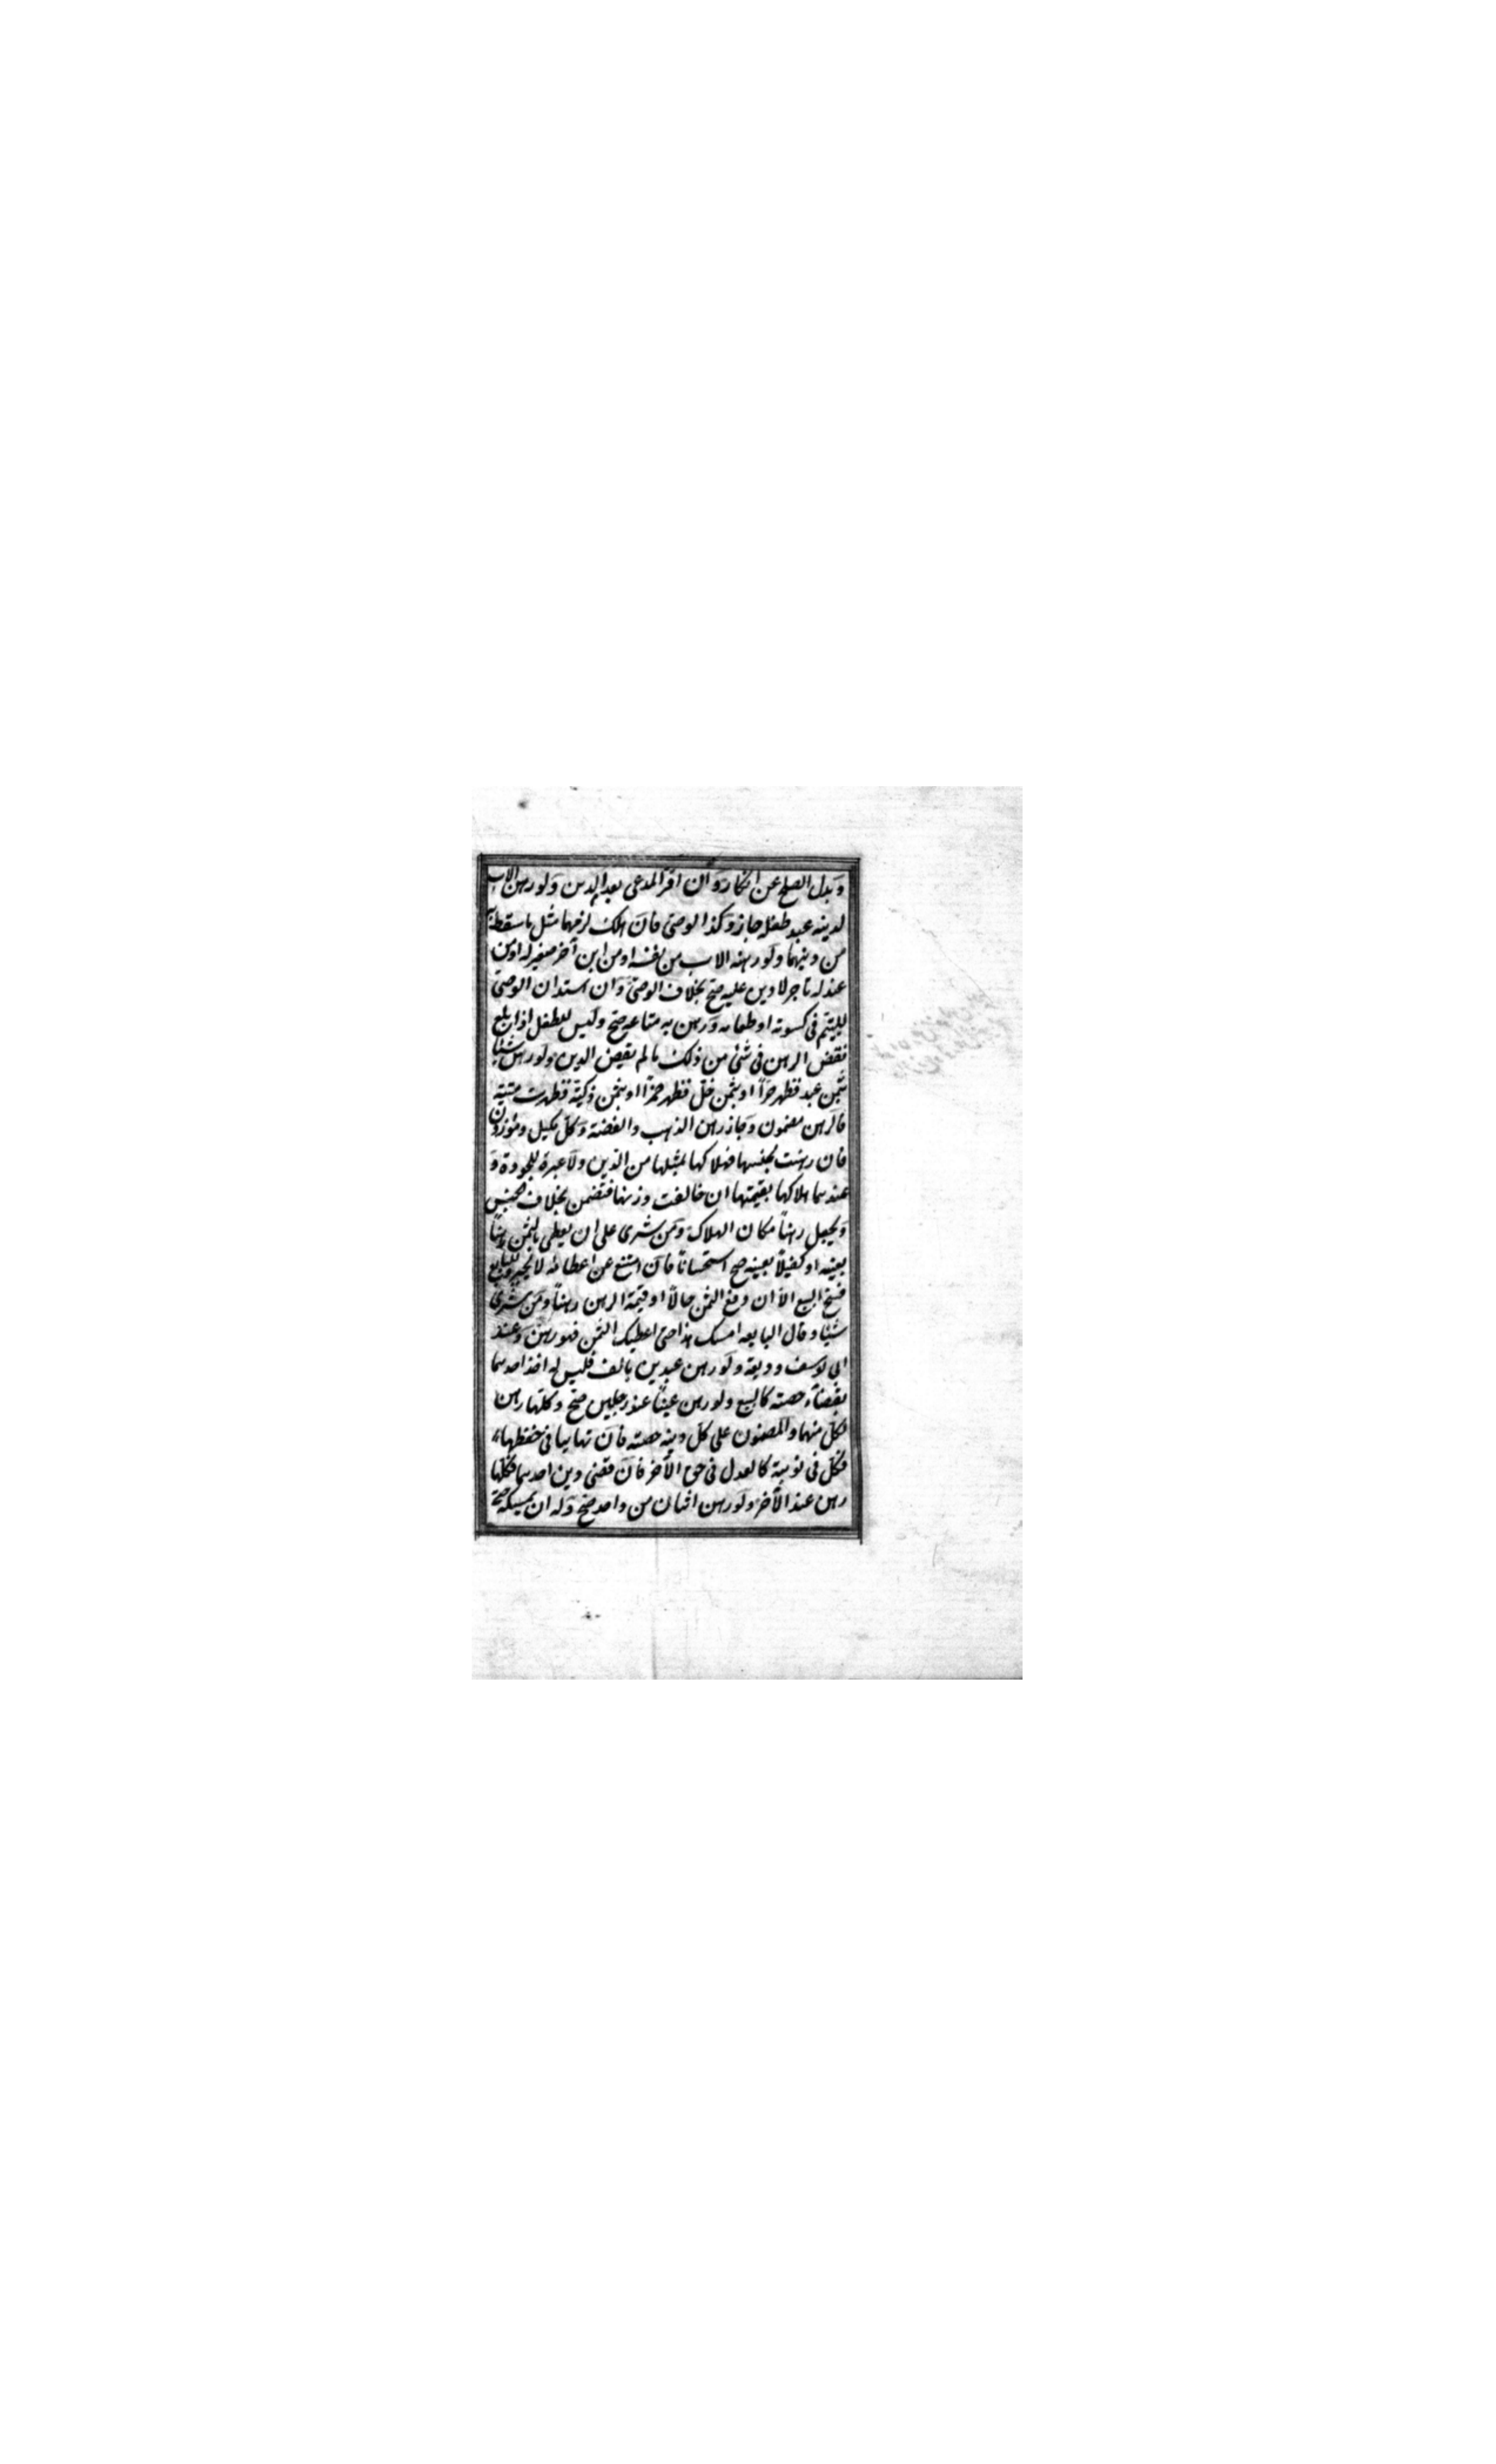 وبدل الصلح عن انكار وان اقر المدعى بعدم الدين ولو رهن الاب
لدينه عبد طفله جاز وكذا الوصى فان هلك لزمهما مثل ما سقط به
من دينهما ولو رهنه الاب من نفسه او من ابن آخر صغير له او من
عبد له تاجر لا دين عليه صح بخلاف الوصى وان استدان الوصى
لليتيم فى كسوته او طعامه ورهن به متاعه صح وليس للطفل اذا بلغ
نقض الرهن فى شئ من ذلك ما لم يقض الدين ولو رهن شيئا
بثمن عبد فظهر حرا او بثمن خل فظهر خمرا او بثمن ذكية فظهرت ميتة
فالرهن مضمون وجاز رهن الذهب والفضة وكل مكيل وموزون
فان رهنت بجنسها فهلاكها بمثلها من الدين ولا عبرة للجودة و
عندهما هلاكها بقيمتها ان خالفت وزنها فتضمن بخلاف الجنس
ويجعل رهنا مكان الهلاك ومن شرى على ان يعطى بالثمن رهنا
بعينه او كفيلا بعينه صح استحسانا فان امتنع عن اعطائه لا يجبر وللبايع
فسخ البيع الا ان دفع الثمن حالا او قيمة الرهن رهنا ومن شرى
شيئا وقال لبايعه امسك هذا حتى اعطيك الثمن فهو رهن وعند
ابى يوسف وديعة ولو رهن عبدين بالف فليس له اخذ احدهما
بقضاء حصته كالبيع ولو رهن عينا عند رجلين صح وكلها رهن
لكل منهما والمضمون على كل دينه حصته فان تهايبا فى حفظها
فكل فى نوبته كالعدل فى حق الآخر فان قضى دين احدهما فكلها
رهن عند الآخر ولو رهن اثنان من واحد صح وله ان يمسكه حتى